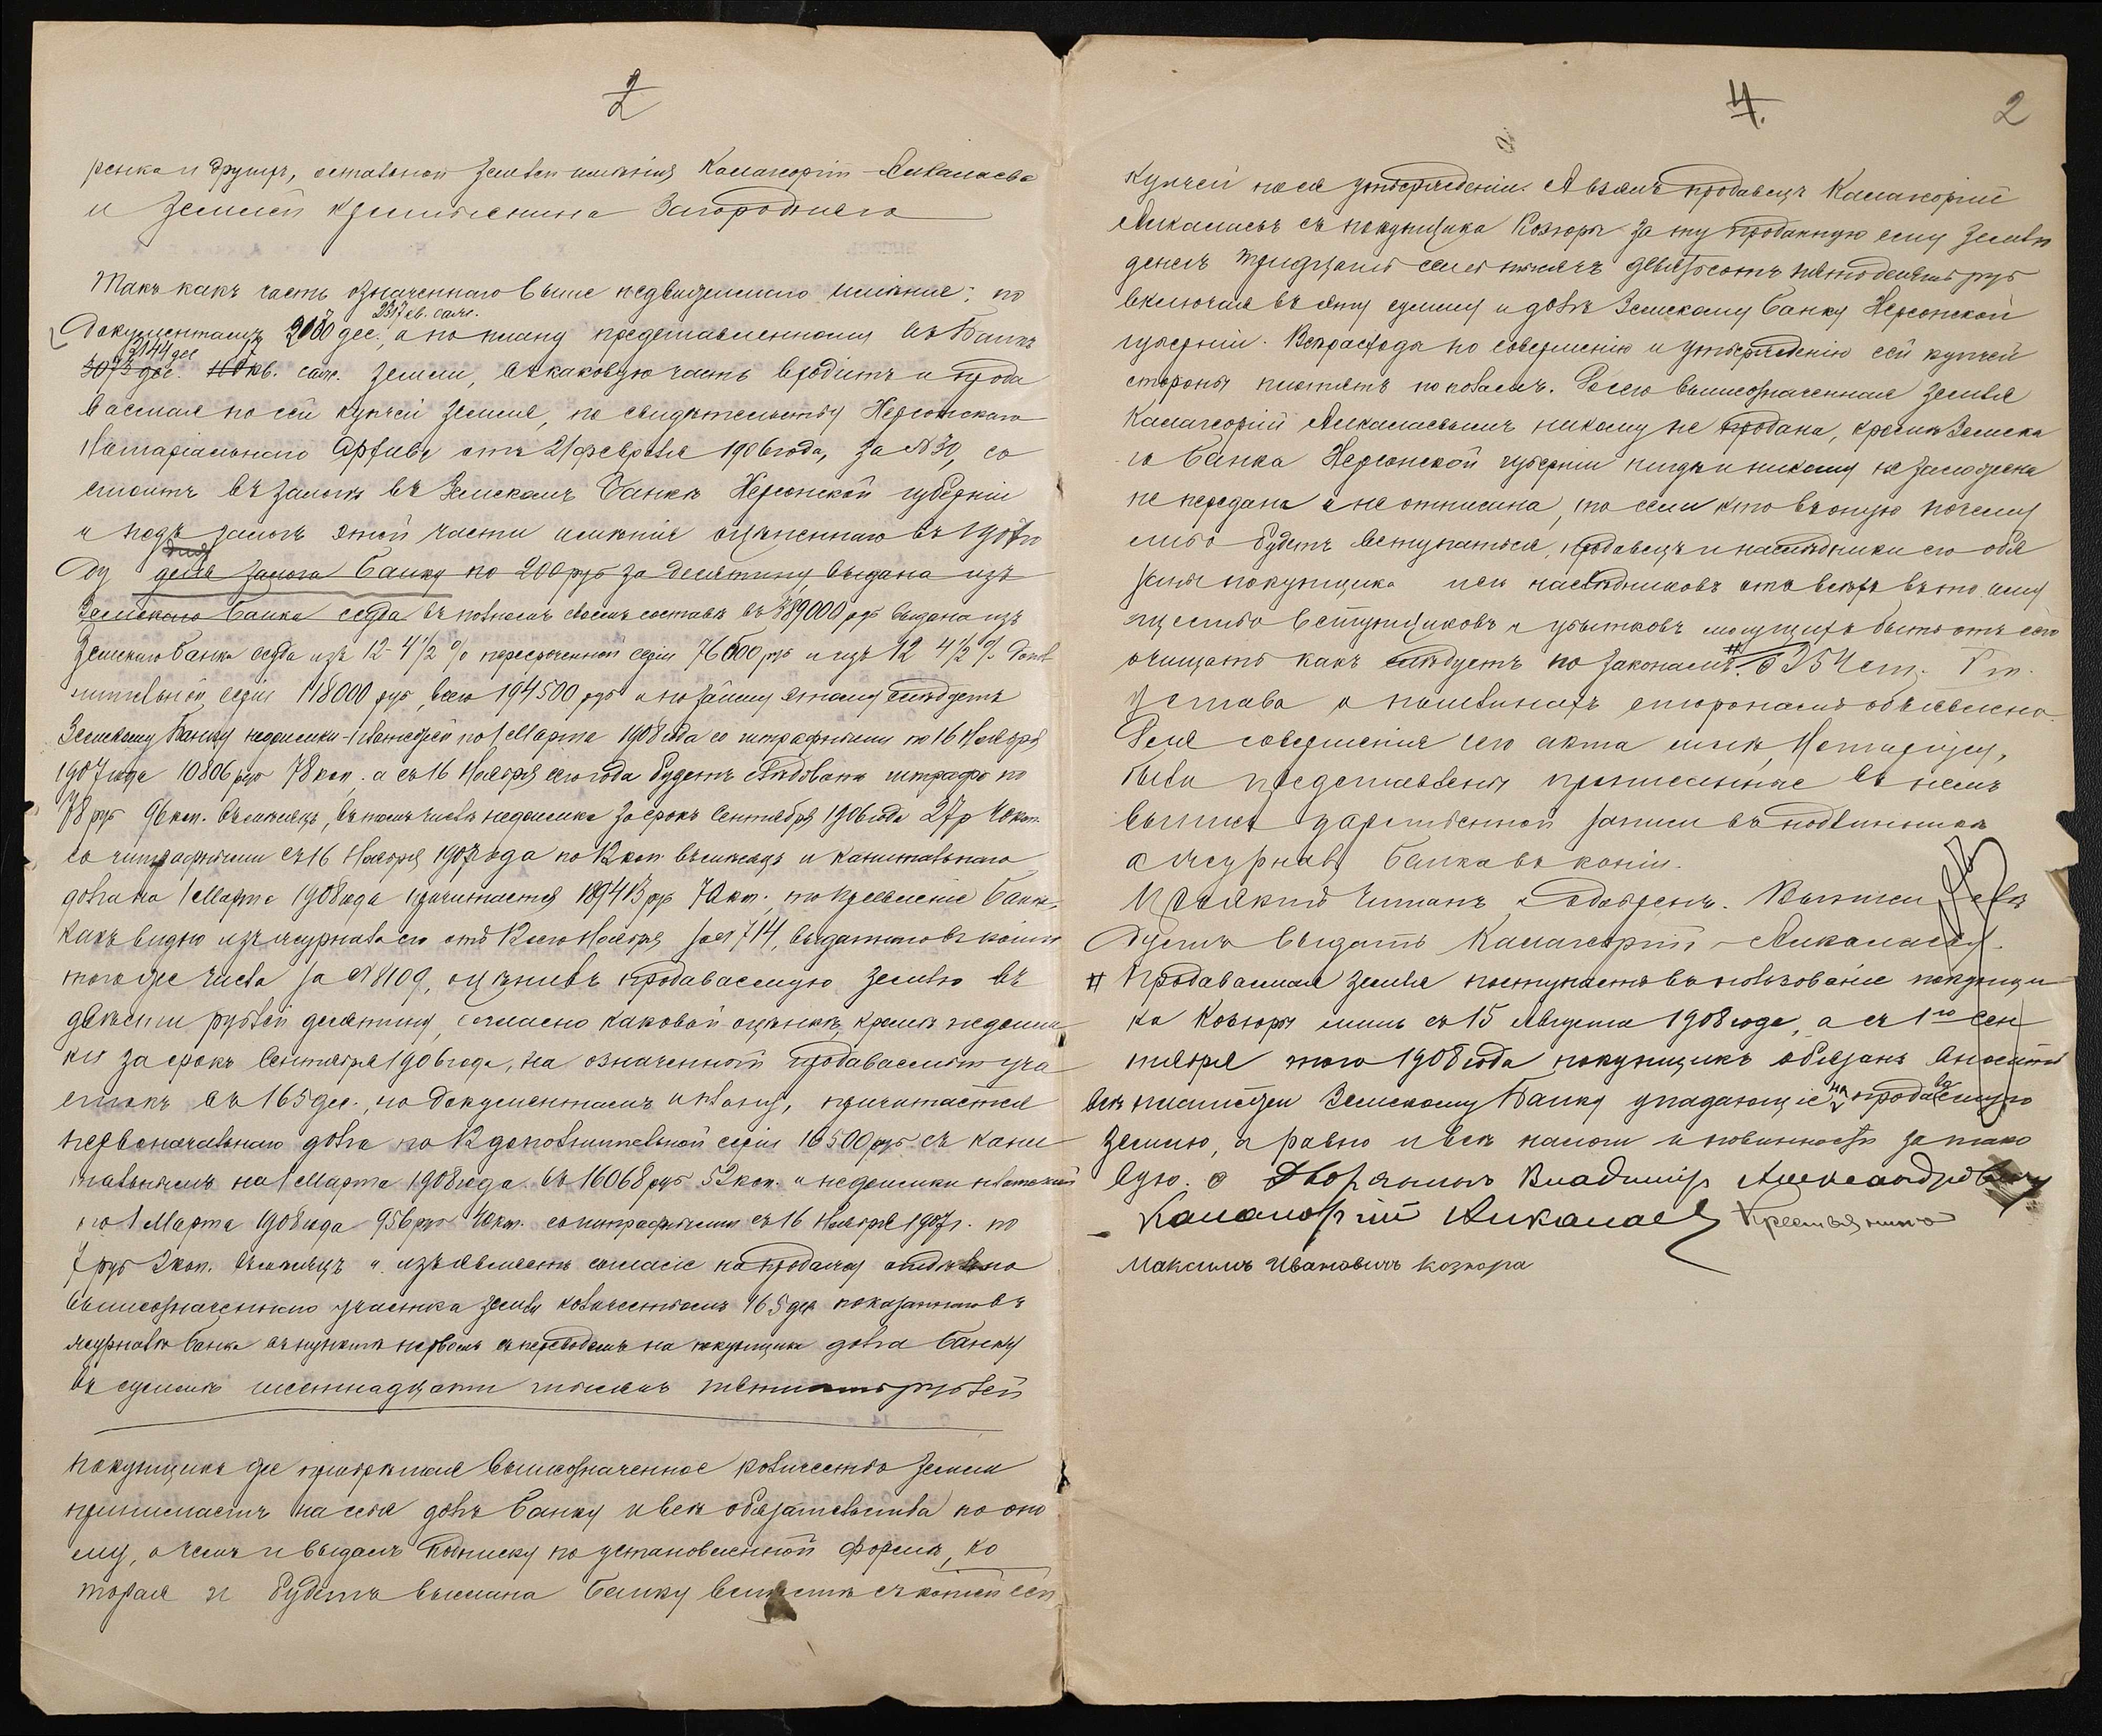 2
ренка и другихъ, остальной землей имѣнія Каламорій-Алкалаева
и землей крестьянина Загороднаго
Такъ какъ часть означеннаго выше недвижимаго имѣнія: по
2317 кв. саж.
документамъ дес., а по плану представленному въ Банкъ
2144 дес
3073 дес. кв. саж. земли, въ каковую часть входитъ и прода
ваемая по сей купчей земля, по свидѣтельству Херсонскаго
Нотаріальнаго Архива отъ 21 февраля 1906 года, за № 30, со
стоитъ въ залогѣ въ Земскомъ Банкѣ Херсонской губерніи
и подъ залогъ этой части имѣнія оцѣненнаго въ 1907 го
ду для залога Банку по 200 руб за десятину выдана изъ
Земскаго Банка ссуда въ полномъ своемъ составѣ въ 389000 руб выдана изъ
Земскаго Банка ссуда изъ 12-4½% пересроченной серіи 76500 руб и изъ 12 4½% допол
нительной серіи 118000 руб, всего 194500 руб и по займу этому слѣдуетъ
Земскому Банку недоимки-платежей по 1 Марта 1908 года со штрафными по 16 Ноября
1907 года 10806 руб 78 коп. а съ 16 Ноября сего года будетъ слѣдовать штрафъ по
78 руб 96 коп. въ мѣсяцъ, въ томъ числѣ недоимка за срокъ Сентября 1906 года 27 р 40 коп.
со штрафными съ 16 Ноября 1907 года по 12 коп въ мѣсяцъ и капитальнаго
долга на 1 Марта 1908 года причитается 189413 руб 70 коп., то Правленіе Банка,
какъ видно изъ журнала его отъ 12 сего Ноября за № 714, выданнаго въ копіи
того же числа за № 8109, оцѣнивъ продаваемую землю въ
двѣсти рублей десятину, согласно каковой оцѣнкѣ, кромѣ недоим
ки за срокъ Сентября 1906 года, на означенный продаваемый уча
стокъ въ 165 дес., по документамъ и плану, причитается
первоначальнаго долга по 12 дополнительной серіи 16500 руб съ капи
тальнымъ на 1 Марта 1908 года въ 16068 руб 52 коп. и недоимки платежей
по 1 Марта 1908 года 956 руб 40 коп. со штрафными съ 16 Ноября 1907 г. по
7 руб 2 коп. въ мѣсяцъ и изъявляетъ согласіе на продажу отдѣльно
вышеозначеннаго участка земли количествомъ 165 дес показаннаго въ
журналѣ Банка въ пунктѣ первомъ съ переводомъ на покупщика долга Банку
въ суммѣ шестнадцати тысячъ пятисотъ рублей
покупщикъ же пріобрѣтая вышеозначенное количество земли
принимаетъ на себя долгъ Банку и всѣ обязательства по оно
му, о чемъ и выдалъ подписку по установленной формѣ, ко
торая и будетъ выслана Банку вмѣстѣ съ копіей сей
4.
2
купчей послѣ утвержденія. А взялъ продавецъ Каламорій
Алкалаевъ съ покупщика Козюры за ту проданную ему землю
денегъ тридцать семь тысячъ девятьсотъ пятьдесятъ руб
включая въ эту сумму и долгъ Земскому Банку Херсонской
губерніи. Всѣ расходы по совершенію и утвержденію сей купчей
стороны платятъ пополамъ. До сего вышеозначенная земля
Каламорій Алкалаевымъ никому не продана, кромѣ Земска
го Банка Херсонской губерніи нигдѣ и никому не заложена
не передана и не отписана, то если кто въ оную почему
либо будетъ вступаться, продавецъ и наслѣдники его обя
заны покупщика и его наслѣдниковъ отъ всѣхъ въ то иму
щество вступщиковъ и убытковъ могущихъ быть отъ сего
очищать какъ слѣдуетъ по законамъ. # о 254 ст. V т.
Устава о пошлинахъ сторонамъ объявлено.
Для совершенія сего акта мнѣ, Нотаріусу,
были представлены прописанные въ немъ
выпись дарственной записи въ подлинникѣ
а журналъ Банка въ копіи.
Проектъ читанъ и одобренъ. Выписи двѣ
будетъ выдать Каламорій-Алкалаеву.
# Продаваемая земля поступаетъ въ пользованіе покупщи
ка Козюры лишь съ 15 Августа 1908 года, а съ 1го Сен
тября того 1908 года покупщикъ обязанъ вносить
всѣ платежи Земскому Банку упадающіе на продаваемую
землю, а равно и всѣ налоги и повинности за тако
вую. Дворянинъ Владиміръ Александровичъ
Каламорій Алкалаевъ Крестьянинъ
Максимъ Ивановичъ Козюра